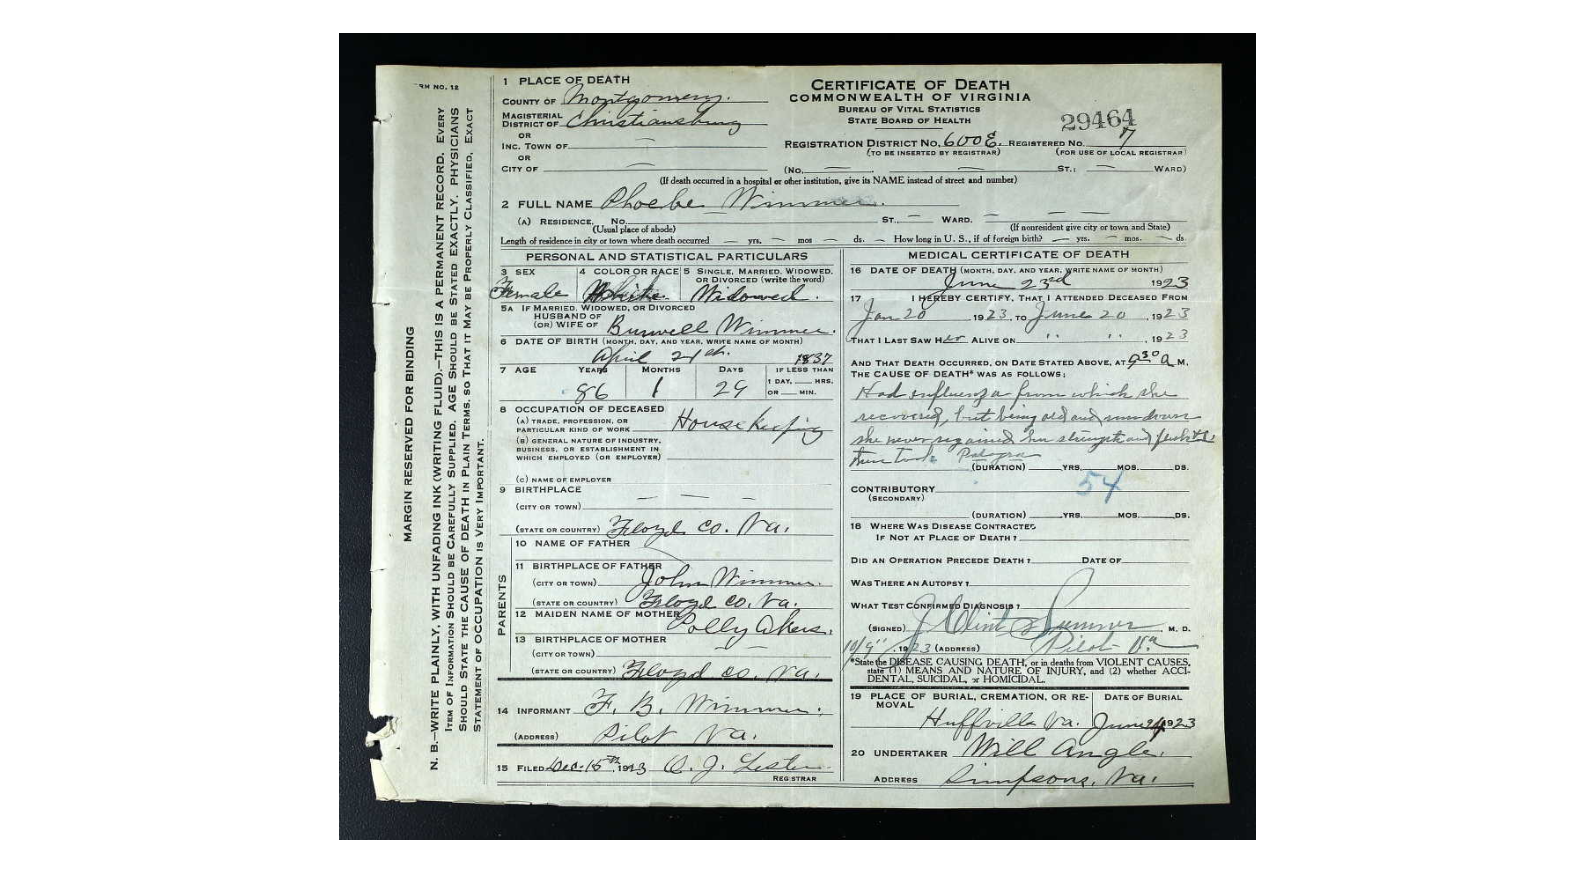 RM NO. 12
MARGIN RESERVED FOR BINDING
N. B.—WRITE PLAINLY, WITH UNFADING INK (WRITING FLUID),—THIS IS A PERMANENT RECORD. EVERY
ITEM OF INFORMATION SHOULD BE CAREFULLY SUPPLIED. AGE SHOULD BE STATED EXACTLY. PHYSICIANS
SHOULD STATE THE CAUSE OF DEATH IN PLAIN TERMS, SO THAT IT MAY BE PROPERLY CLASSIFIED. EXACT
STATEMENT OF OCCUPATION IS VERY IMPORTANT.
1 PLACE OF DEATH
COUNTY OF Montgomery.
MAGISTERIAL
DISTRICT OF Christiansburg
OR
INC. TOWN OF —
OR
CITY OF —
CERTIFICATE OF DEATH
COMMONWEALTH OF VIRGINIA
BUREAU OF VITAL STATISTICS
STATE BOARD OF HEALTH
29464
REGISTRATION DISTRICT NO. 600E. REGISTERED NO. 17
(TO BE INSERTED BY REGISTRAR) (FOR USE OF LOCAL REGISTRAR)
(No. — — ST.: — WARD)
(If death occurred in a hospital or other institution, give its NAME instead of street and number)
2 FULL NAME Phoebe Wimmer.
(A) RESIDENCE. No. — ST. — WARD. — — —
(Usual place of abode) (If nonresident give city or town and State)
Length of residence in city or town where death occurred — yrs. — mos — ds. — How long in U. S., if of foreign birth? — yrs. — mos. — ds
PERSONAL AND STATISTICAL PARTICULARS
3 SEX
Female
4 COLOR OR RACE
White
5 SINGLE, MARRIED, WIDOWED,
OR DIVORCED (write the word)
Widowed.
5A IF MARRIED, WIDOWED, OR DIVORCED
HUSBAND OF
(OR) WIFE OF Burwell Wimmer.
6 DATE OF BIRTH (MONTH, DAY, AND YEAR, WRITE NAME OF MONTH)
April 1837
7 AGE YEARS MONTHS DAYS IF LESS THAN
1 DAY, HRS.
OR MIN.
86 1 29
8 OCCUPATION OF DECEASED
(A) TRADE, PROFESSION, OR
PARTICULAR KIND OF WORK Housekeeping
(B) GENERAL NATURE OF INDUSTRY,
BUSINESS, OR ESTABLISHMENT IN
WHICH EMPLOYED (OR EMPLOYER)
(C) NAME OF EMPLOYER
9 BIRTHPLACE — — —
(CITY OR TOWN)
(STATE OR COUNTRY) Floyd Co. Va.
PARENTS
10 NAME OF FATHER
11 BIRTHPLACE OF FATHER
(CITY OR TOWN) John Wimmer.
(STATE OR COUNTRY) Floyd Co. Va.
12 MAIDEN NAME OF MOTHER
Polly Akers.
13 BIRTHPLACE OF MOTHER
(CITY OR TOWN) —
(STATE OR COUNTRY) Floyd Co. Va.
14 INFORMANT F. B. Wimmer.
(ADDRESS) Pilot Va.
15 FILED Dec. 15th, 1923 O. J. Lester
REGISTRAR
MEDICAL CERTIFICATE OF DEATH
16 DATE OF DEATH (MONTH, DAY, AND YEAR, WRITE NAME OF MONTH)
June 23rd 1923
17 I HEREBY CERTIFY, THAT I ATTENDED DECEASED FROM
Jan 20 1923, TO June 20, 1923
THAT I LAST SAW Her ALIVE ON " " , 1923
AND THAT DEATH OCCURRED, ON DATE STATED ABOVE, AT 930 a M.
THE CAUSE OF DEATH* WAS AS FOLLOWS:
Had influenza from which she
recovered, but being old and rundown
she never regained her strength and flesh &
then took Pelagra
(DURATION) YRS. MOS. DS.
CONTRIBUTORY 54
(SECONDARY)
(DURATION) YRS. MOS. DS.
18 WHERE WAS DISEASE CONTRACTED
IF NOT AT PLACE OF DEATH?
DID AN OPERATION PRECEDE DEATH? DATE OF
WAS THERE AN AUTOPSY?
WHAT TEST CONFIRMED DIAGNOSIS?
(SIGNED) J Clint Sumner M. D.
10/9", 1923 (ADDRESS) Pilot Va
*State the DISEASE CAUSING DEATH, or in deaths from VIOLENT CAUSES,
state (1) MEANS AND NATURE OF INJURY, and (2) whether ACCI-
DENTAL, SUICIDAL, or HOMICIDAL.
19 PLACE OF BURIAL, CREMATION, OR RE-
MOVAL
Huffville Va.
DATE OF BURIAL
June 24 1923
20 UNDERTAKER Will Angle.
ADDRESS Simpsons, Va.